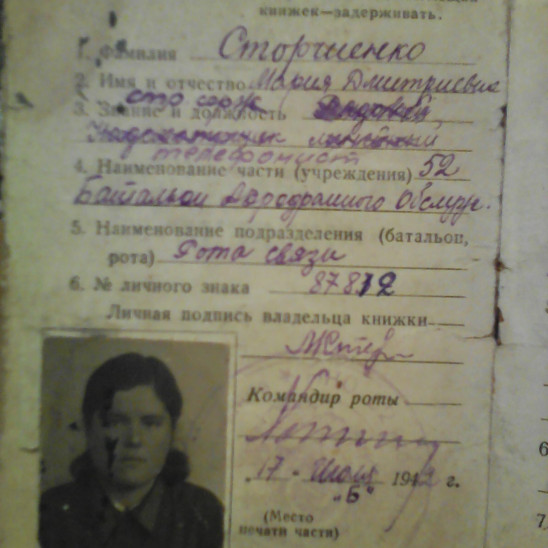 книжек—задерживать.
1. Фамилия Сторчиенко
2. Имя и отчество Мария Дмитриевна
3. Звание и должность
телефонист
4. Наименование части (учреждения) 52
Батальон Аеродромного Обслуж.
5. Наименование подразделения (батальон,
рота) Рота связи
6. № личного знака 87812
Личная подпись владельца книжки
Командир роты
17 - 1942 г.
„Б"
(Место
печати части)
6
7